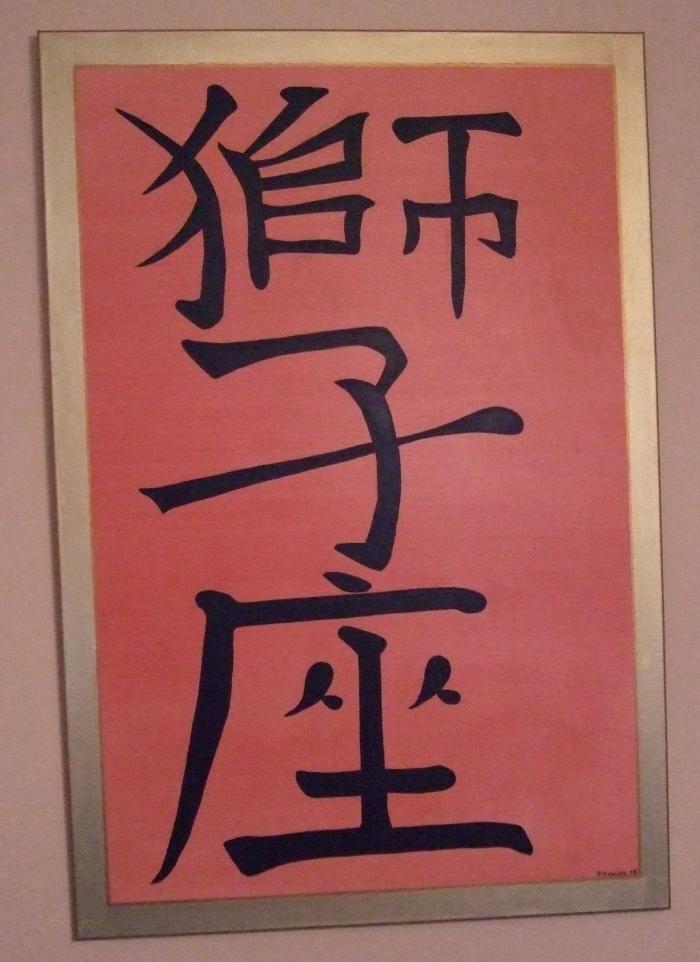 獅子座